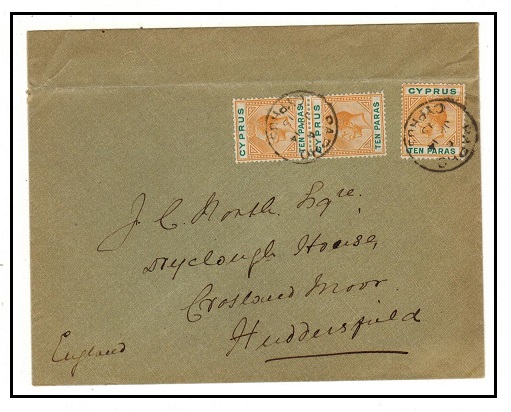 CYPRUS
TEN PARAS
CYPRUS
TEN PARAS
CYPRUS
TEN PARAS
PAPHO
CYPRUS
PAPHO
CYPRUS
J. C. North Esqre.
Dryclough House,
Crosland Moor
Huddersfield
England